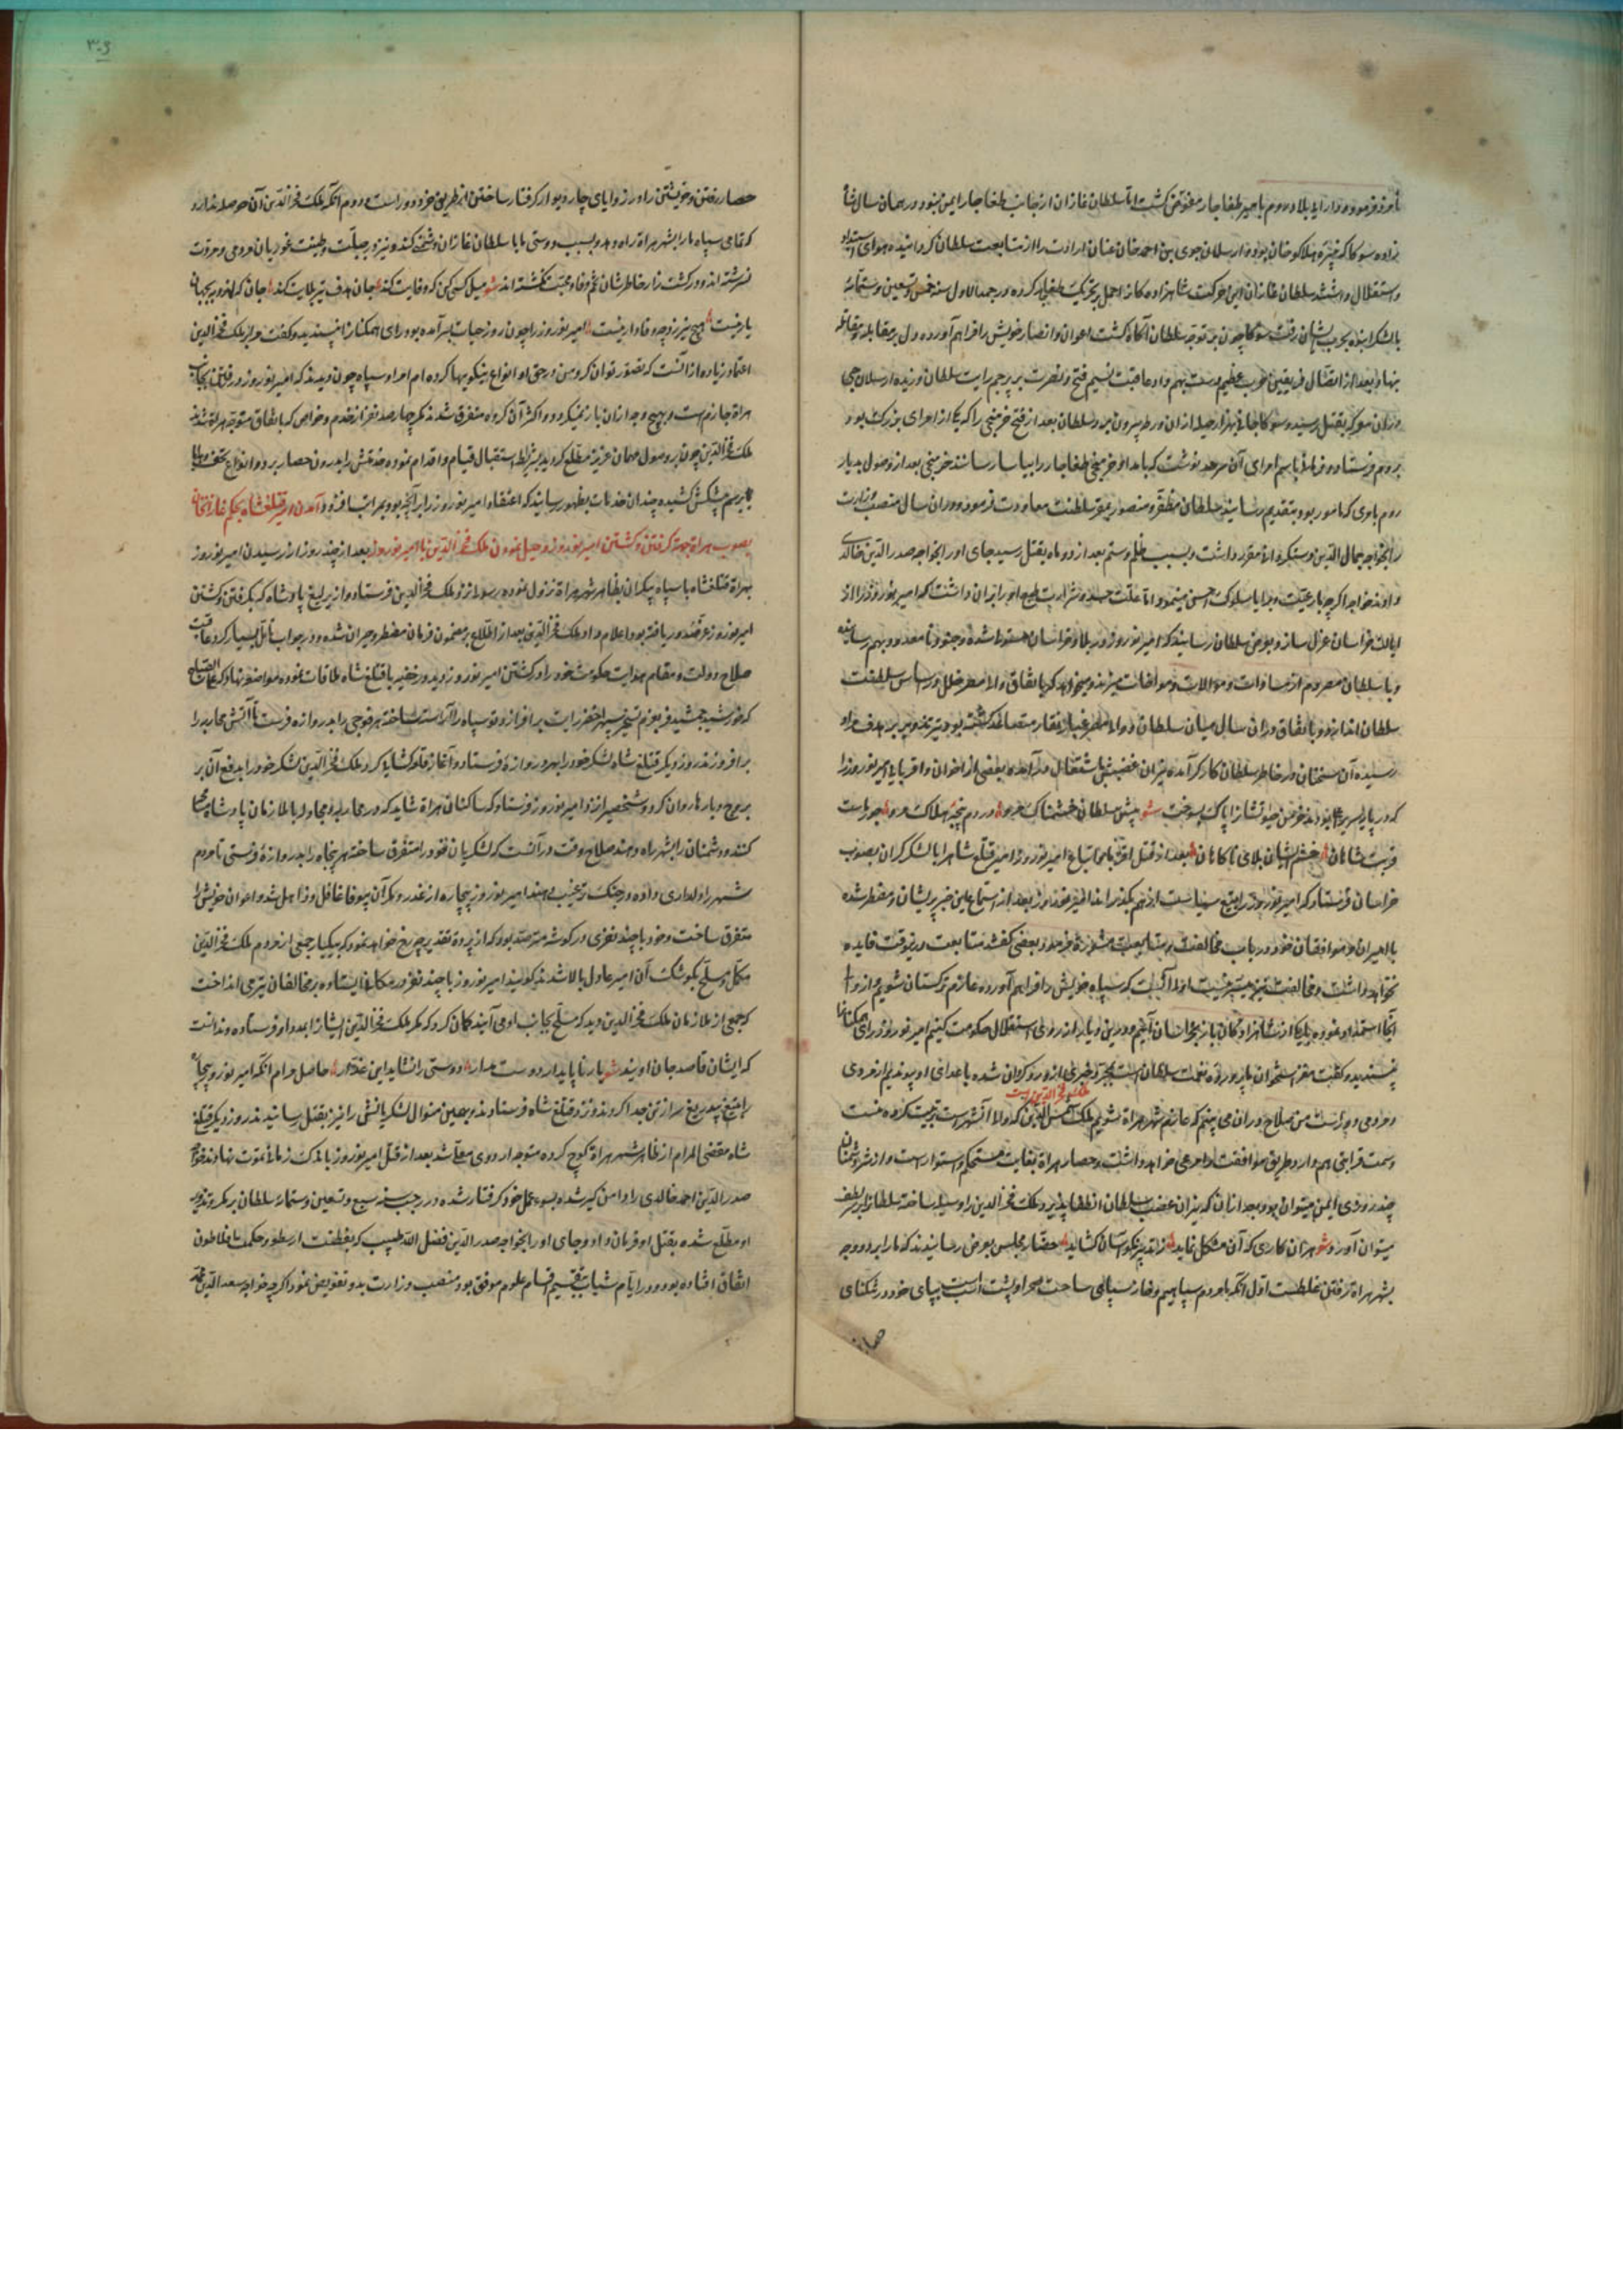 مأمور فرموده و دارایی بلاد روم بامیر طغاجار مفوض کشت اما سلطان غازان از جانب طغاجار ایمن نبود و در همان سال شا
زاده سوکا که نبیره هلاکو خان بود و ارسلان جوی بن احمد خان عنان ارادت را از متابعت سلطان کردانیده هوای استبداد
و استقلال داشتند سلطان غازان این حرکت شاهزاده کانرا حمل بر تحریک طغاجار کرده در جمادی الاول سنه خمس و تسعین و ستمائه
با لشکر انبوه بحرب ایشان رفت سوکا چون بر توجه سلطان آکاه کشت اعوان و انصار خویش را فراهم آورده دل بر مقابله و مقاتله
بنهاد بعد از اتصال فریقین حرب عظیم دست بهم داد و عاقبت نسیم فتح و نصرت بر پرچم رایت سلطان وزیده ارسلان جی
در آن معرکه بقتل رسید و سوکا جانی بهزار حیله از ان ورطه بیرون برد و سلطان بعد از فتح خرمنجی را که یکی از امرای بزرک بود
بروم فرستاد و فرمانی باسم امرای آن سرحد نوشت که بامداد خرمنجی طغاجار را بیاسا رسانند خرمنجی بعد از وصول بدیار
روم بامری که مامور بود بتقدیم رسانید سلطان مظفر و منصور بمقر سلطنت معاودت فرمود و در ان سال منصب وزارت
را بخواجه جمال الدین دستکردانی مقرر داشت و بسبب ظلم و ستم بعد از دو ماه بقتل رسید جای او را بخواجه صدر الدین خالدی
داد و خواجه اکرچه با رعیت و برایا سلوک احسن مینمود اما علت حسد و شرارت طبع او را بران داشت که امیر نوروز را از
ایالت خراسان عزل سازد و بعرض سلطان رسانید که امیر نوروز در بلاد خراسان مستولی شده و جنود نامعدود بهم رسانیده
و با سلطان مصر دم از مساوات و موالات و موافقات میزند و میخواهد که باتفاق والی مصر خلل در اساس سلطنت
سلطان اندازد و باتفاق در ان سال میان سلطان و والی مصر غبار نقار متصاعد کشته بود تیر تزویر بر هدف مراد
رسیده آن سخنان در خاطر سلطان کارکر آمده نیران غضبش باشتعال در آمده بعضی از اخوان و اقربای امیر نوروز را
که در پایه سریر اعلی بودند خرمن حیاتشانرا پاک بسوخت شعر پیش سلطان خشمناک مرو در دم پنجه هلاک مرو چون راست
قربت شاهان خشم ایشان بلای ناکاهان بعد از قتل اقربا و اتباع امیر نوروز امیر قتلغ شاه را با لشکر کران بصوب
خراسان فرستاد که امیر نوروز را بتیغ سیاست از هم بکذراند امیر نوروز بعد از استماع این خبر پریشان و مضطر شده
با امیران و موافقان خود در باب مخالفت و متابعت مشورة فرمود بعضی کفتند متابعت در ینوقت فایده
نخواهد داشت و مخالفت نیز میسر نیست اولی آنست که سپاه خویش را فراهم آورده عازم ترکستان شویم و از والی
آنجا استمداد نموده با یکی از شاهزادکان باز بخراسان آئیم و درین دیار از روی استقلال حکومت کنیم امیر نوروز رای همکنانرا
نپسندید و کفت مغز استخوان ما پرورده نعمت سلطان است بمجرد خبری از و رو کردان شده با عدای او پیوندیم از مردی
ملک فخر الدین است
و مردمی دور است من صلاح در ان می بینم که عازم شهر هراة شویم ملک شمس الدین که والی آنشهر است تربیت کرده منست
و سمت قرابتی هم دارد طریق موافقت را مرعی خواهد داشت و حصار هراة بغایت مستحکم و استوار است و از شر دشمنان
چند روزی ایمن میتوان بود و بعد از ان که نیران غضب سلطان انطفا پذیرد ملک فخر الدین را وسیله ساخته سلطانرا بر سر لطف
میتوان آورد شعر هر ان کاری که آن مشکل نماید زتدبیر نکو آسان کشاید حضار مجلس بعرض رسانیدند که ما را بر دو وجه
بشهر هراة رفتن غلطست اول آنکه ما مردم سپاهییم و حصار سپاهی ساحت صحرا و پشت اسب است بپای خود در تنکنای
حصار
٣٠٤
حصار رفتن و خویشتن را در زوایای چار دیوار کرفتار ساختن از طریق خرد دور است و دوم آنکه ملک فخر الدین آن حوصله ندارد
که تمامی سپاه ما را بشهر هراة راه دهد و بسبب دوستی ما با سلطان غازان دشمنی کند و نیز در جبلت و طینت غوریان مردمی و مروت
نسرشته اند و در کشت زار خاطرشان تخم وفا و محبت نکشته اند شعر میل کسی کن که وفایت کند جان هدف تیر بلایت کند جان که نه در بجهانی
یار نیست هیچ نیرزد چو وفادار نیست امیر نوروز را چون روز حیات بسر آمده بود رای همکنانرا نپسندید و کفت مرا بر ملک فخر الدین
اعتماد زیاده از آنست که تصور توان کرد و من در حق او انواع نیکوییها کرده ام امرا و سپاه چون دیدند که امیر نوروز در رفتن بجانب
هراة جازمست و بهیچ وجه از ان باز نمیکردد اکثر آن کروه متفرق شدند مکر چهار صد نفر از خدم و خواص که باتفاق متوجه هراة شدند
ملک فخر الدین چون بر وصول مهمان عزیز مطلع کردید بشرایط استقبال قیام و اقدام نمود و خدمتش را بدرون حصار برد و انواع تحف و هدایا
برسم پیشکش کشیده چندان خدمات بظهور رسانید که اعتقاد امیر نوروز زیاده از آنچه بود بمراتب افزود آمدن امیر قتلغشاه بحکم غازانخان
بصوب هراة جهة کرفتن و کشتن امیر نوروز و حیل نمودن ملک فخر الدین با امیر نوروز بعد از چند روز از رسیدن امیر نوروز
بهراة قتلغشاه با سپاه بیکران بظاهر شهر هراة نزول نموده رسولی نزد ملک فخر الدین فرستاد و از یرلیغ پادشاه که بکرفتن و کشتن
امیر نوروز عز صدور یافته بود اعلام داد ملک فخر الدین بعد از اطلاع بر مضمون فرمان مضطر و حیران شده و در جواب تأمل بسیار کرد و عاقبت
صلاح دولت و مقام هدایت حکومت خود را در کشتن امیر نوروز دید و در خفیه با قتلغ شاه ملاقات نموده مواضعه نهاد که علی الصباح
که خورشید جمشید فر بعزم تسخیر سپهر اخضر رایت بر افرازد تو سپاه را آراسته ساخته هر فوجی را بدر وازه فرست تا آتش محاربه را
بر افروزند روز دیکر قتلغ شاه لشکر خود را بهر دروازه فرستاد و آغاز قلعه کشایی کرد ملک فخر الدین لشکر خود را بدفع آن بر
بروج و بارها روان کرد و شخصی را نزد امیر نوروز فرستاد که ساکنان هراة شاید که در محاربه و مجادله با ملازمان پادشاه محابا
کنند و دشمنان را بشهر راه دهند صلاح وقت در آنست که لشکریان خود را متفرق ساخته هر پنجاه را بدروازه فرستی تا مردم
شهر را دلداری داده در جنک ترغیب دهند امیر نوروز بیچاره از غدر و مکر آن بیوفا غافل و ذاهل شد و اعوان خویش را
متفرق ساخت و خود با چند نفری در کوشه مترصد بود که از پرده تقدیر چه رخ خواهد نمود که بیکبار جمعی از مردم ملک فخر الدین
مکمل و مسلح بکوشک آن امیر عادل بالا شدند کویند امیر نوروز با چند نفر در مکانی ایستاده بر مخالفان تیر می انداخت
که جمعی از ملازمان ملک فخر الدین دید که مسلح بجانب او می آیند کمان کرد که مکر ملک فخر الدین ایشانرا بمدد او فرستاده و ندانست
که ایشان قاصد جان اویند شعر یار ناپایدار دوست مدار دوستی را نشاید این غدار حاصل مرام آنکه امیر نوروز بیچاره
را بتیغ بیدریغ سر از تن جدا کردند و نزد قتلغ شاه فرستادند و بهمین منوال لشکریانش را نیز بقتل رسانیدند روز دیکر قتلغ
شاه مقضی المرام از ظاهر شهر هراة کوچ کرده متوجه اردوی معلی شد بعد از قتل امیر نوروز باندک زمانی نوبت نهاد خواجه
صدر الدین احمد خالدی را دامن کیر شد و بسوء عمل خود کرفتار شده در رجب سنه سبع و تسعین و ستمائه سلطان بر مکر و تذویر
او مطلع شده بقتل او فرمان داد و جای او را بخواجه صدر الدین فضل الله طبیب که بفطنت ارسطو و حکمت با فلاطون
اتفاق افتاده بود و در ایام شباب بتقسیم اقسام علوم موفق بود منصب وزارت بدو تفویض نمود اکرچه خواجه سعد الدین محمد